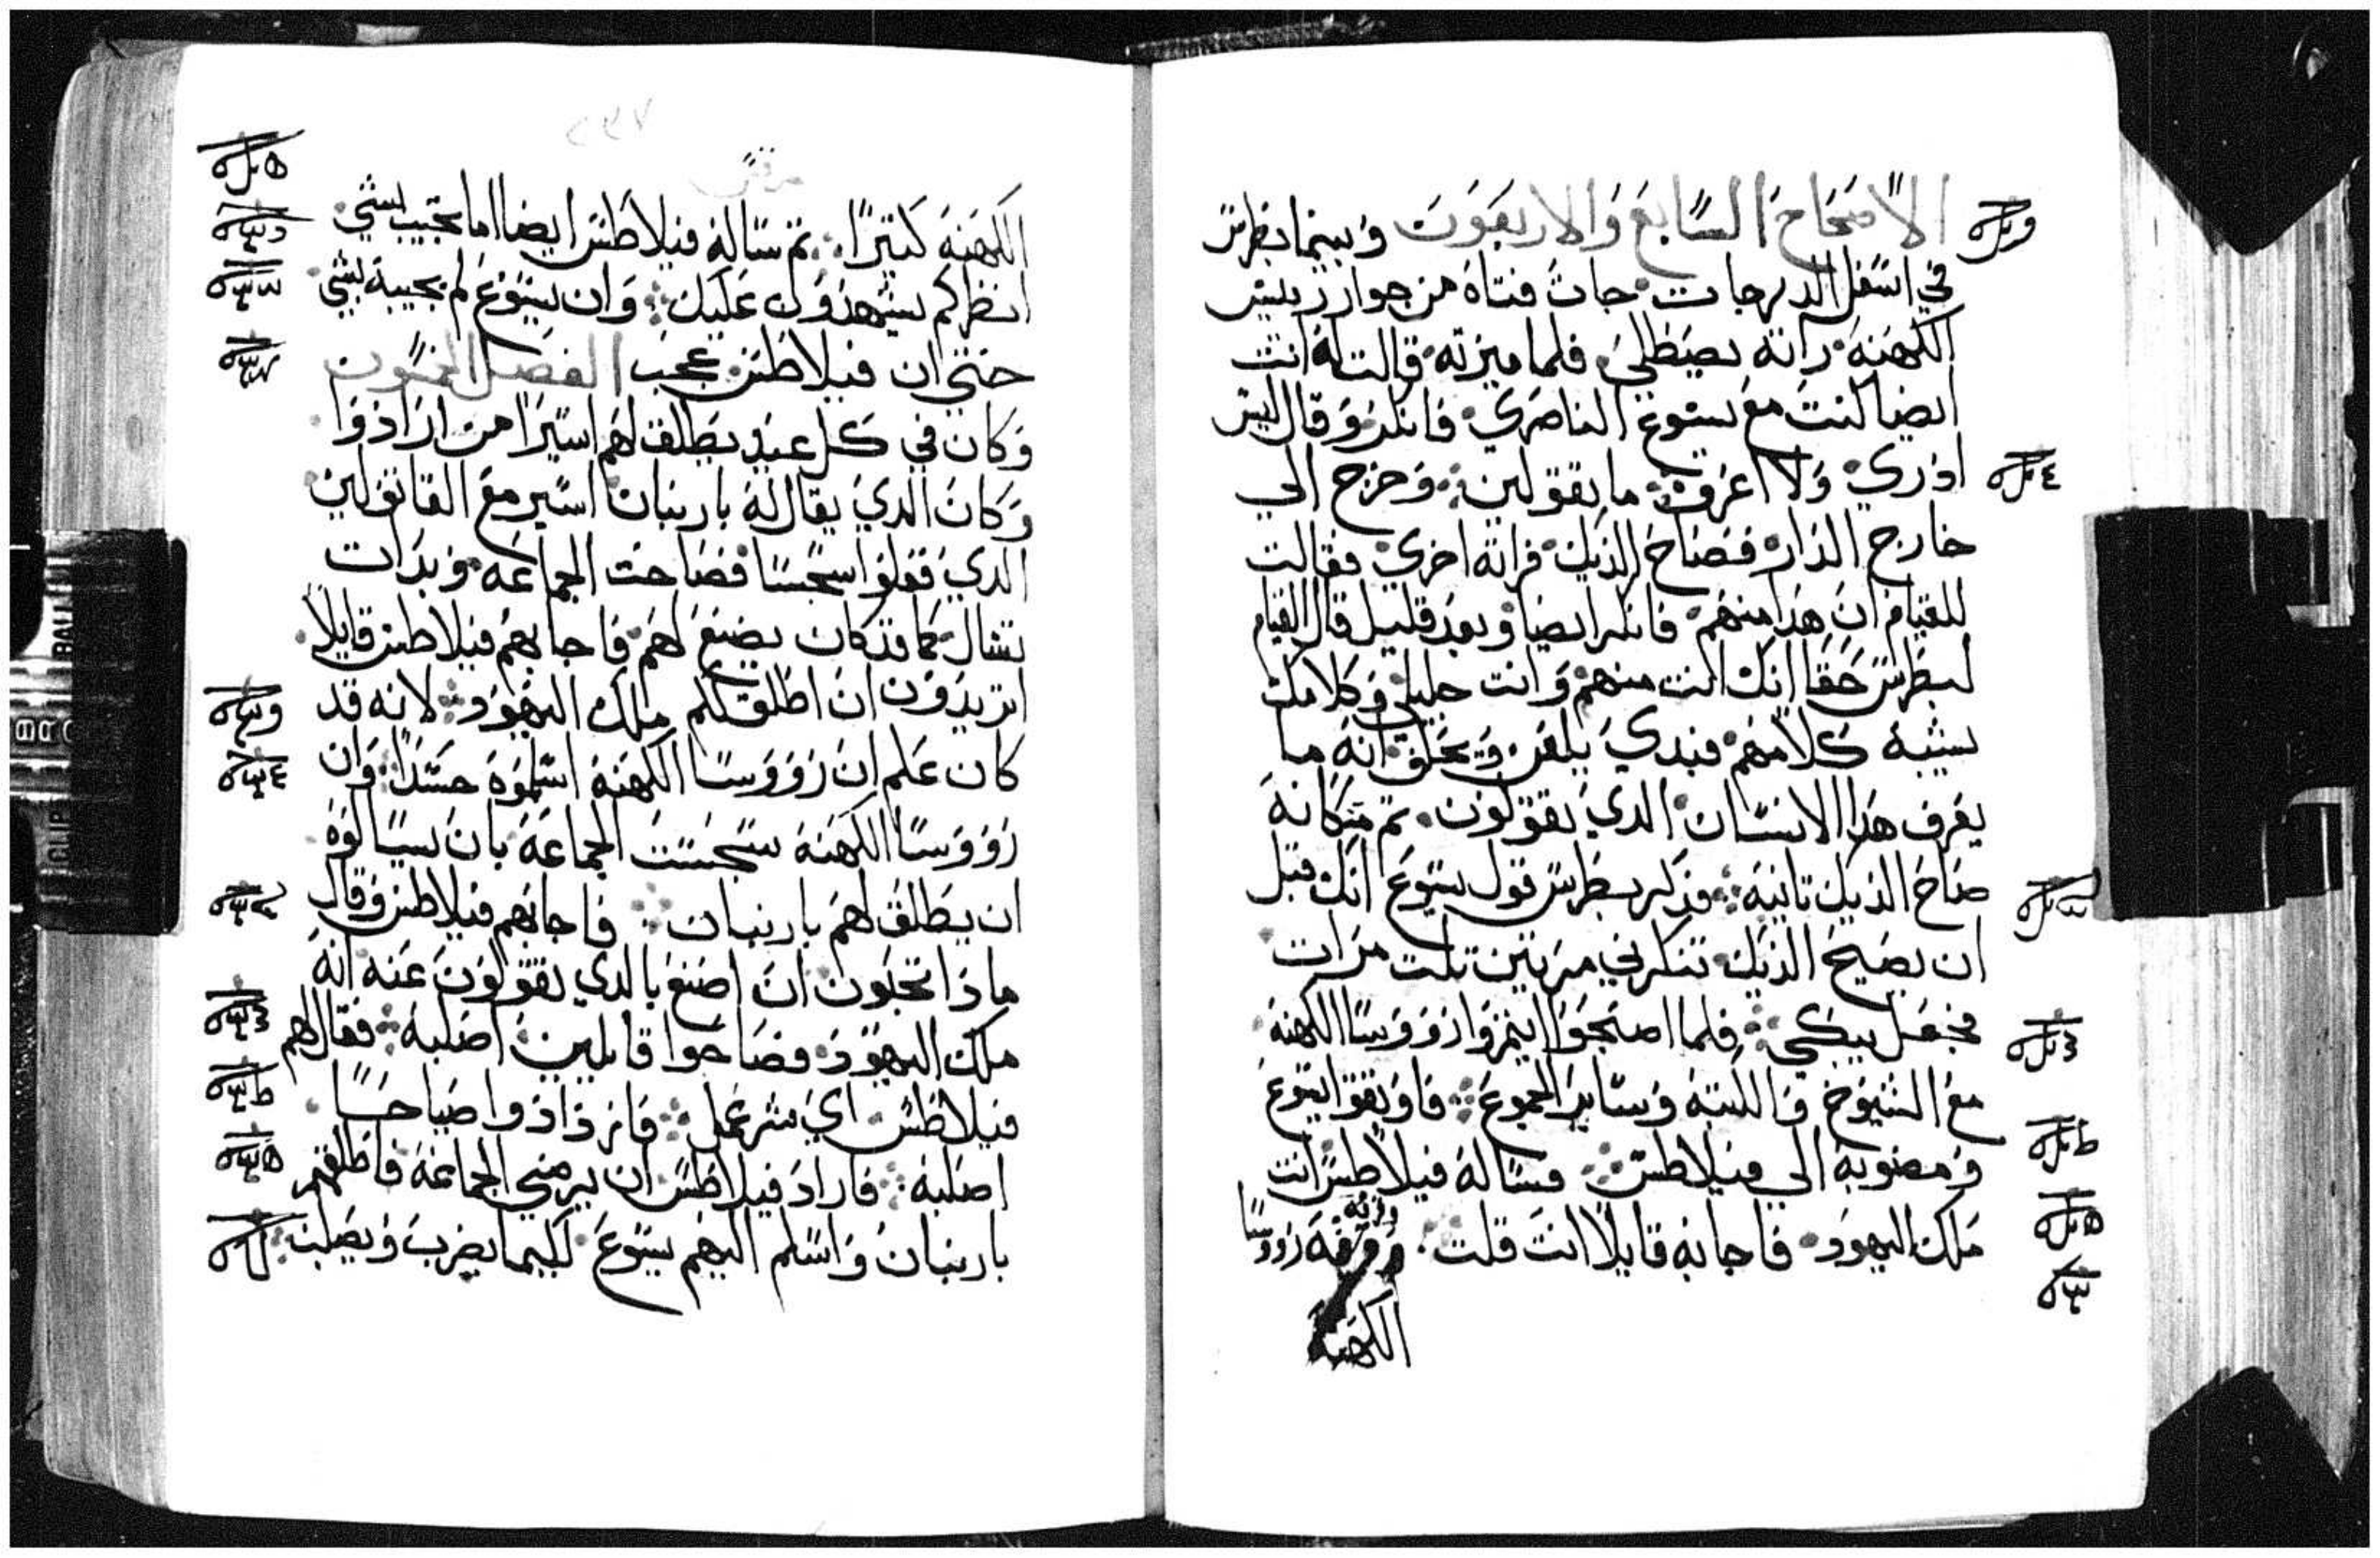 الاصحاح السابع والاربعون وبينما بطرس
في اسفل الدرجات جات فتاة من جوار رييس
الكهنة راته يصطلي فلما ميزته قالت له انت
ايضا كنت مع يسوع الناصري فانكر وقال ليس
ادري ولا اعرف ما تقولين وخرج الي
خارج الدار فصاح الديك فراته اخري فقالت
للقيام ان هذا منهم فانكر ايضا وبعد قليل قال القيام
لبطرس حقا انك انت منهم وانت جليلي وكلامك
يشبه كلامهم فبدي يلعن ويحلف انه ما
يعرف هذا الانسان الدي تقولون تم مكانه
صاح الديك تانية فذكر بطرس قول يسوع انك قبل
ان يصيح الديك تنكرني مرتين تلت مرات
فجعل يبكي فلما اصبحوا ايتمروا رووسا الكهنة
مع الشيوخ والكتبة وساير الجموع فاوتقوا يسوع
ومضوا به الي فيلاطس فساله فيلاطس انت
ملك اليهود فاجابه قايلا انت قلت رووسا
الكهنة
٢٣٧
مرقس
الكهنة كتيرا تم ساله فيلاطس ايضا اما تجيب بشي
انظر كم يشهدون عليك وان يسوع لم يجيبه بشي
حتي ان فيلاطس عجب الفصل الخمسون
وكان في كل عيد يطلق لهم اسيرا من ارادوا
وكان الدي يقال له باربان اسير مع القاتولين
الدي فعلوا سجسا فصاحت الجماعة وبدات
تسال كما قد كان يصنع لهم فاجابهم فيلاطس قايلا
اتريدون ان اطلق لكم ملك اليهود لانه قد
كان علم ان رووسا الكهنة اسلموه حسدا وان
رووسا الكهنة سجست الجماعة بان يسالوه
ان يطلق لهم باربان فاجابهم فيلاطس وقال
ماذا تحبون ان اصنع بالدي تقولون عنه انه
ملك اليهود فصاحوا قايلين اصلبه فقال لهم
فيلاطس اي شر عمل فازدادوا صياحا
اصلبه فاراد فيلاطس ان يرضي الجماعة فاطلق لهم
باربان واسلم اليهم يسوع لكيما يضرب ويصلب